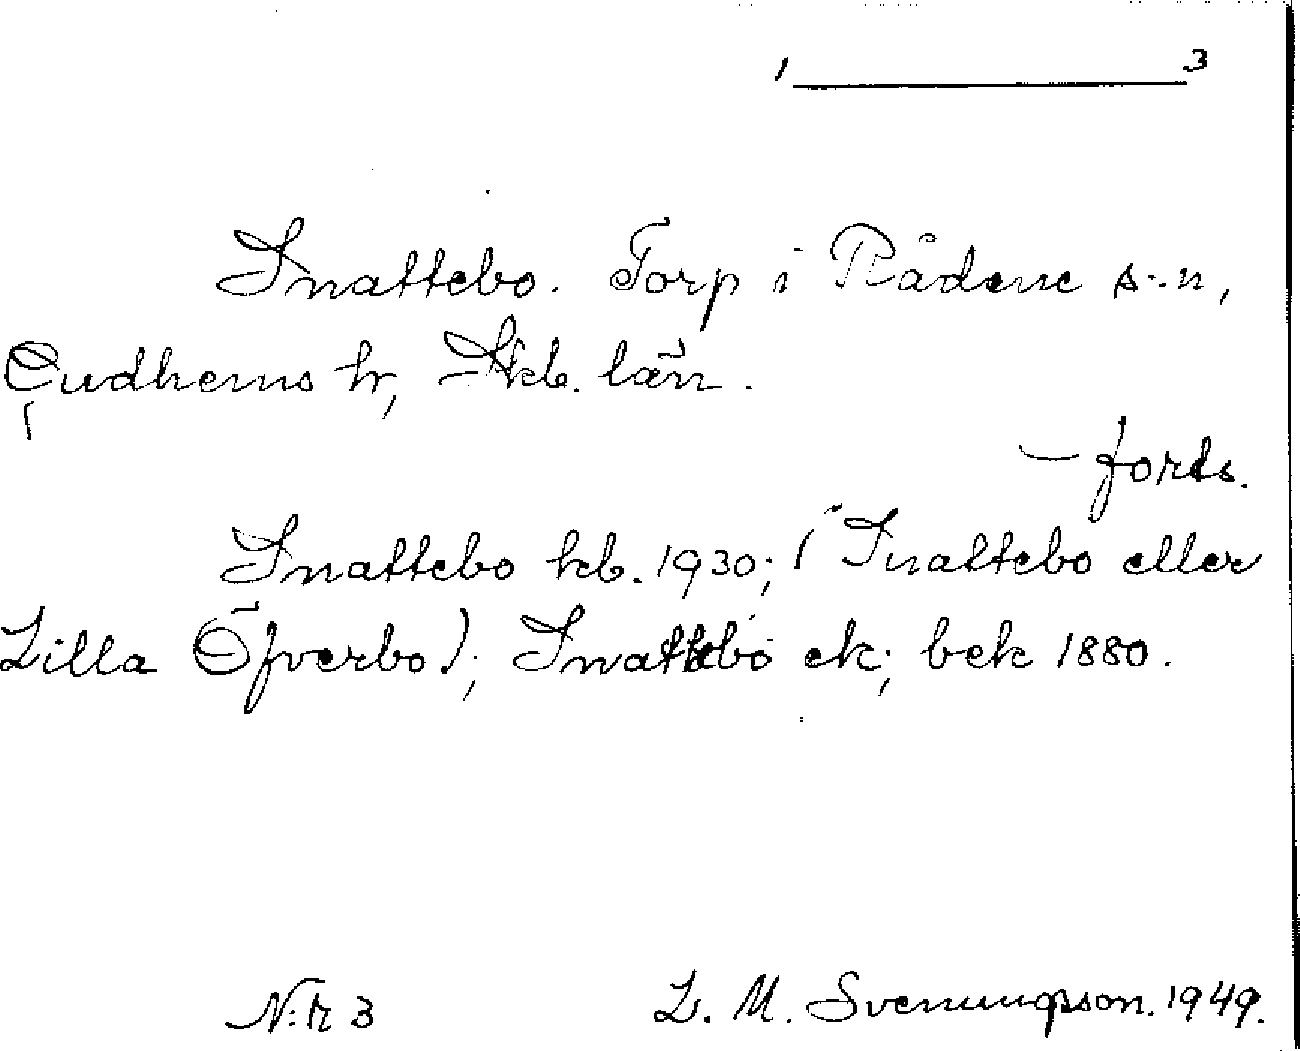 1 3
Snattebo. Torp i Rådene s:n,
Gudhems hr, Skb. län.
– forts.
Snattebo kb. 1930; (Snattebo eller
Lilla Öfverbo); Snattebo ek; bek 1880.
N:r 3 L. M. Svenungsson. 1949.